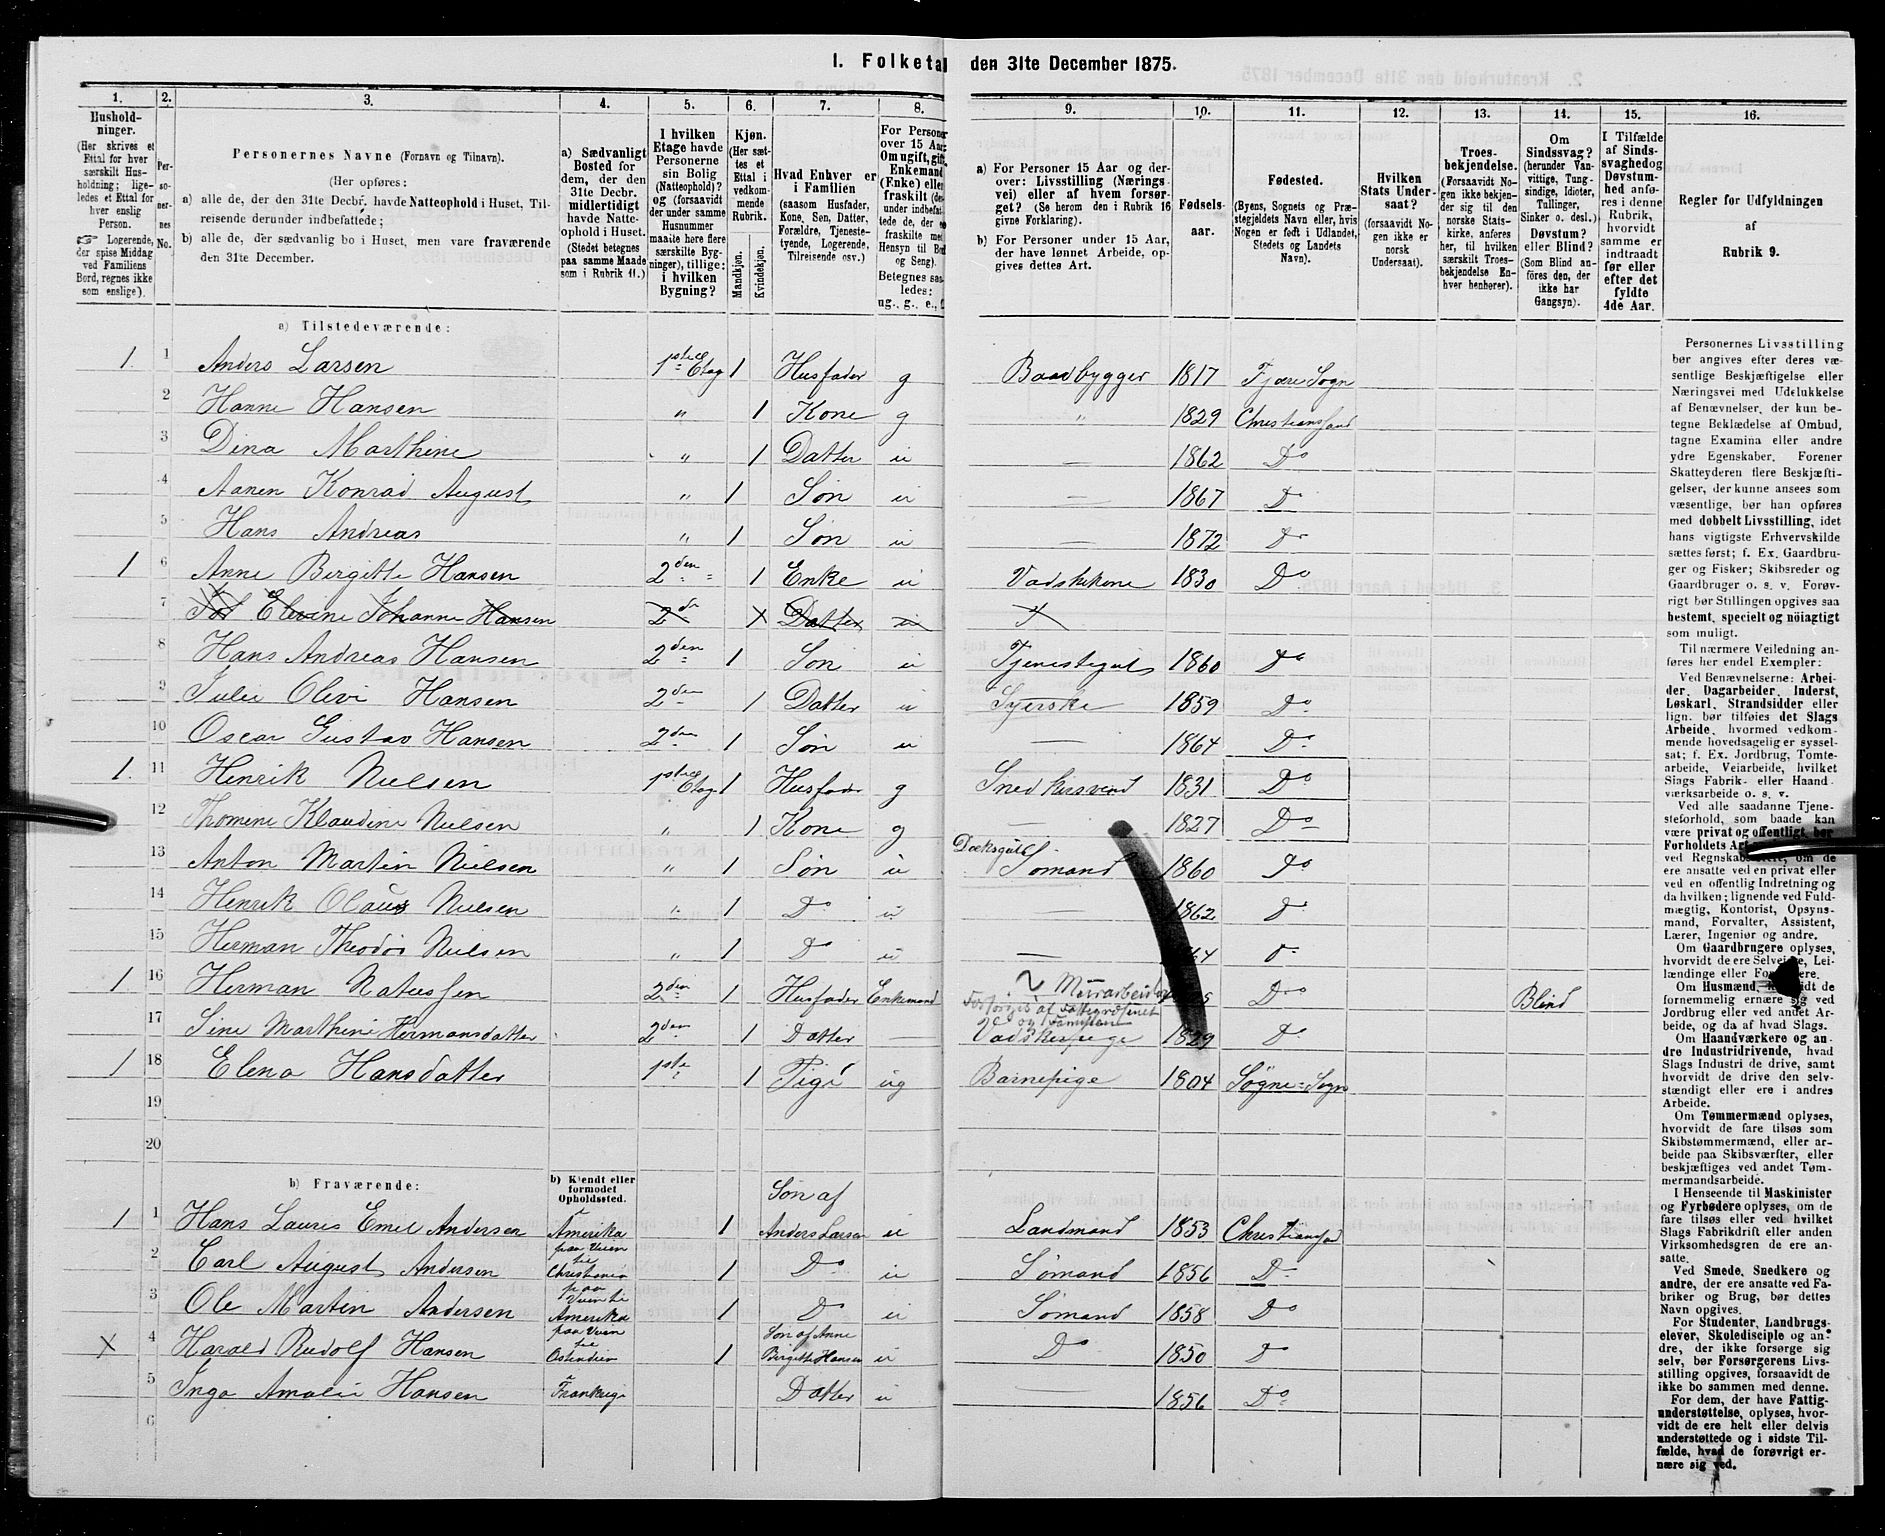 I. Folketal den 31te December 1875.
1. 2. 3. 4. 5. 6. 7. 8. 9. 10. 11. 12. 13. 14. 15. 16.
Husholdninger. (Her skrives et Ettal for hver særskilt Husholdning; ligeledes et Ettal for hver enslig Person. ☞ Logerende, der spise Middag ved Familiens Bord, regnes ikke som enslige).
Personernes No.
Personernes Navne (Fornavn og Tilnavn).
(Her opføres:
a) alle de, der den 31te Decbr. havde Natteophold i Huset, Tilreisende derunder indbefattede;
b) alle de, der sædvanlig bo i Huset, men vare fraværende den 31te December.
a) Sædvanligt Bosted for dem, der den 31te Decbr. midlertidigt havde Natteophold i Huset. (Stedet betegnes paa samme Maade som i Rubrik 11.)
I hvilken Etage havde Personerne sin Bolig (Natteophold)? og (forsaavidt der under samme Husnummer maatte høre flere særskilte Bygninger), tillige: i hvilken Bygning?
Kjøn. (Her sættes et Ettal i vedkommende Rubrik. Mandkjøn. Kvindekjøn.
Hvad Enhver er i Familien (saasom Husfader, Kone, Søn, Datter, Forældre, Tjenestetyende, Logerende, Tilreisende osv.)
For Personer over 15 Aar: Om ugift, gift, Enkemand (Enke) eller fraskilt
a) For Personer 15 Aar og derover: Livsstilling (Næringsvei) eller af hvem forsørget? (Se herom den i Rubrik 16 givne Forklaring).
b) For Personer under 15 Aar, der have lønnet Arbeide, opgives dettes Art.
Fødselsaar.
Fødested. (Byens, Sognets og Præstegjeldets Navn eller, hvis Nogen er født i Udlandet, Stedets og Landets Navn).
Hvilken Stats Undersaat? (forsaavidt Nogen ikke er norsk Undersaat).
Troesbekjendelse. (Forsaavidt Nogen ikke bekjender sig til den norske Statskirke, anføres her, til hvilken særskilt Troesbekjendelse Enhver henhører).
Om Sindssvag? (herunder Vanvittige, Tungsindige, Idioter, Tullinger, Sinker o. desl.) Døvstum? eller Blind? (Som Blind anføres den, der ikke har Gangsyn).
I Tilfælde af Sindssvaghed og Døvstumhed anføres i denne Rubrik, hvorvidt samme er indtraadt før eller efter det fyldte 4de Aar.
Regler for Udfyldningen af Rubrik 9.
a) Tilstedeværende:
1 1 Anders Larsen 1ste Etag 1 Husfader g Baadbygger 1817 Fjære Sogn
2 Hanne Hansen " 1 Kone g " 1829 Christianssand
3 Dina Marthine " 1 Datter u — 1862 Do
4 Aanen Konrad August " 1 Søn u — 1867 Do
5 Hans Andreas " 1 Søn u — 1872 Do
1 6 Anne Birgitte Hansen 2den 1 Enke u Vadskekone 1830 Do
7 Elevine Johanne Hansen 2d X Datter u
8 Hans Andreas Hansen 2den 1 Søn u Tjenestegut 1860 Do
9 Julie Olevi Hansen 2den 1 Datter u Syerske 1859 Do
10 Oscar Gustav Hansen 2den 1 Søn u — 1864 Do
1 11 Henrik Nielsen 1ste Etag 1 Husfader g Snedkersvend 1831 Do
12 Thomine Klaudine Nielsen " 1 Kone g — 1827 Do
13 Anton Martin Nielsen " 1 Søn u Dæksgut Sømand 1860 Do
14 Henrik Olaus Nielsen " 1 Do u — 1862 Do
15 Herman Theodor Nielsen " 1 Do u — D
1 16 Herman 2den 1 Husfader Enkemand Murarbeider Forsørges af Fattigvæsenet og Familien Do Blind
17 Sine Marthine Hermansdatter 2den 1 Datter — Vadskepige 1829 Do
1 18 Elena Hansdatter 1ste 1 Pige ug Barnepige 1804 Søgne Sogn
19
20
b) Fraværende:
b) Kjendt eller formodet Opholdssted.
1 1 Hans Lauris Emil Andersen Amerika 1 Søn af Anders Larsen u Landmand 1853 Christianssand
2 Carl August Andersen paa Veien til Christiania 1 Do u Sømand 1856 Do
3 Ole Martin Andersen paa Veien til Amerika 1 Do u Sømand 1858 Do
X 4 Harald Rudolf Hansen paa Veien til Ostindien 1 Søn af Anne Birgitte Hansen u Do 1850 Do
5 Inga Amalie Hansen Frankrige Datter u — 1856 Do
6
Personernes Livsstilling bør angives efter deres væsentlige Beskjæftigelse eller Næringsvei med Udelukkelse af Benævnelser, der kun betegne Beklædelse af Ombud, tagne Examina eller andre ydre Egenskaber. Forener Skatteyderen flere Beskjæftigelser, der kunne ansees som væsentlige, bør han opføres med dobbelt Livsstilling, idet hans vigtigste Erhvervskilde sættes først; f. Ex. Gaardbruger og Fisker; Skibsreder og Gaardbruger o. s. v. Forøvrigt bør Stillingen opgives saa bestemt, specielt og nöiagtigt som muligt.
Til nærmere Veiledning anføres her endel Exempler:
Ved Benævnelserne: Arbeider, Dagarbeider, Inderst, Løskarl, Strandsidder eller lign. bør tilføies det Slags Arbeide, hvormed vedkommende hovedsagelig er sysselsat; f. Ex. Jordbrug, Tomtearbeide, Veiarbeide, hvilket Slags Fabrik- eller Haandværksarbeide o. s. v.
Ved alle saadanne Tjenesteforhold, som baade kan være privat og offentligt, bør Forholdets Art ved om de ere ansatte ved en privat eller ved en offentlig Indretning og da hvilken; lignende ved Fuldmægtig, Kontorist, Opsynsmand, Forvalter, Assistent, Lærer, Ingeniør og andre.
Om Gaardbrugere oplyses, hvorvidt de ere Selveiere, Leilændinge eller Forpagtere.
Om Husmænd, hvorvidt de fornemmelig ernære sig ved Jordbrug eller ved andet Arbeide, og da af hvad Slags.
Om Haandværkere og andre Industridrivende, hvad Slags Industri de drive, samt hvorvidt de drive den selvstændigt eller ere i andres Arbeide.
Om Tømmermænd oplyses, hvorvidt de fare tilsøs som Skibstømmermænd, eller arbeide paa Skibsværfter, eller beskjæftiges ved andet Tømmermandsarbeide.
I Henseende til Maskinister og Fyrbødere oplyses, om de fare tilsøs eller ved hvilket Slags Fabrikdrift eller anden Virksomhedsgren de ere ansatte.
Ved Smede, Snedkere og andre, der ere ansatte ved Fabriker og Brug, bør dettes Navn opgives.
For Studenter, Landbrugselever, Skoledisciple og andre, der ikke forsørge sig selv, bør Forsørgerens Livsstilling opgives, forsaavidt de ikke bo sammen med denne.
For dem, der have Fattigunderstøttelse, oplyses, hvorvidt de ere helt eller delvis understøttede og i sidste Tilfælde, hvad de forøvrigt ernære sig ved.